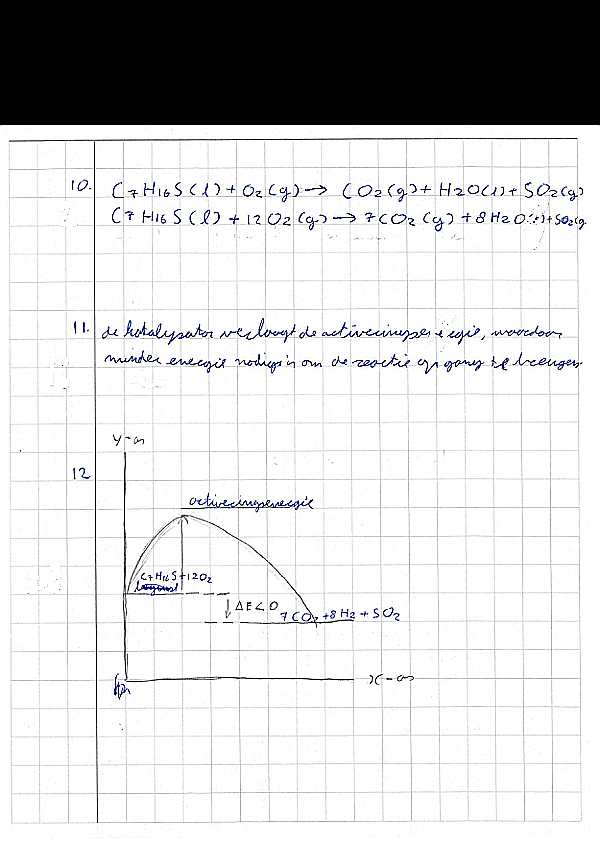 10. C7H16S(l) + O2(g) → CO2(g) + H2O(l) + SO2(g)
C7H16S(l) + 12O2(g) → 7CO2(g) + 8H2O(l) + SO2(g
11. de katalysator verlaagt de activeringsenergie, waardoor
minder energie nodig is om de reactie op gang te brengen.
y-as
12
activeringsenergie
C7H16S+12O2
ΔE<0
7CO2 +8H2 + SO2
x-as